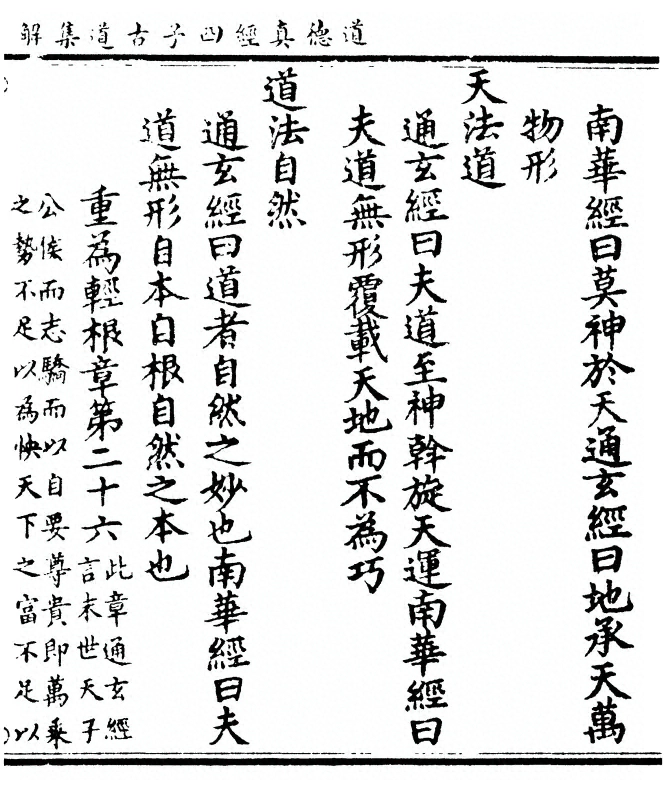 道德真經四子古道集解
南華經曰莫神於天通玄經曰地承天萬
物形
天法道
通玄經曰夫道至神斡旋天運南華經曰
夫道無形覆載天地而不為巧
道法自然
通玄經曰道者自然之妙也南華經曰夫
道無形自本自根自然之本也
重為輕根章第二十六
此章通玄經
言末世天子
公侯而志驕而以自要尊貴即萬乘
之勢不足以為快天下之富不足以